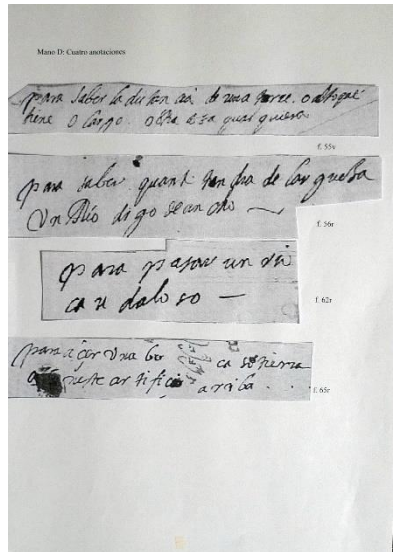 Mano D: Cuatro anotaciones
para saber la distancia de una torre. o alto que
tiene o largo. o otra cosa qual quiera
f. 55v
para saber quant
un Rio digo de ancho
f. 56r
para pasar un rio
caudaloso
f. 62r
para açer una
este artificio arriba.
f. 65r